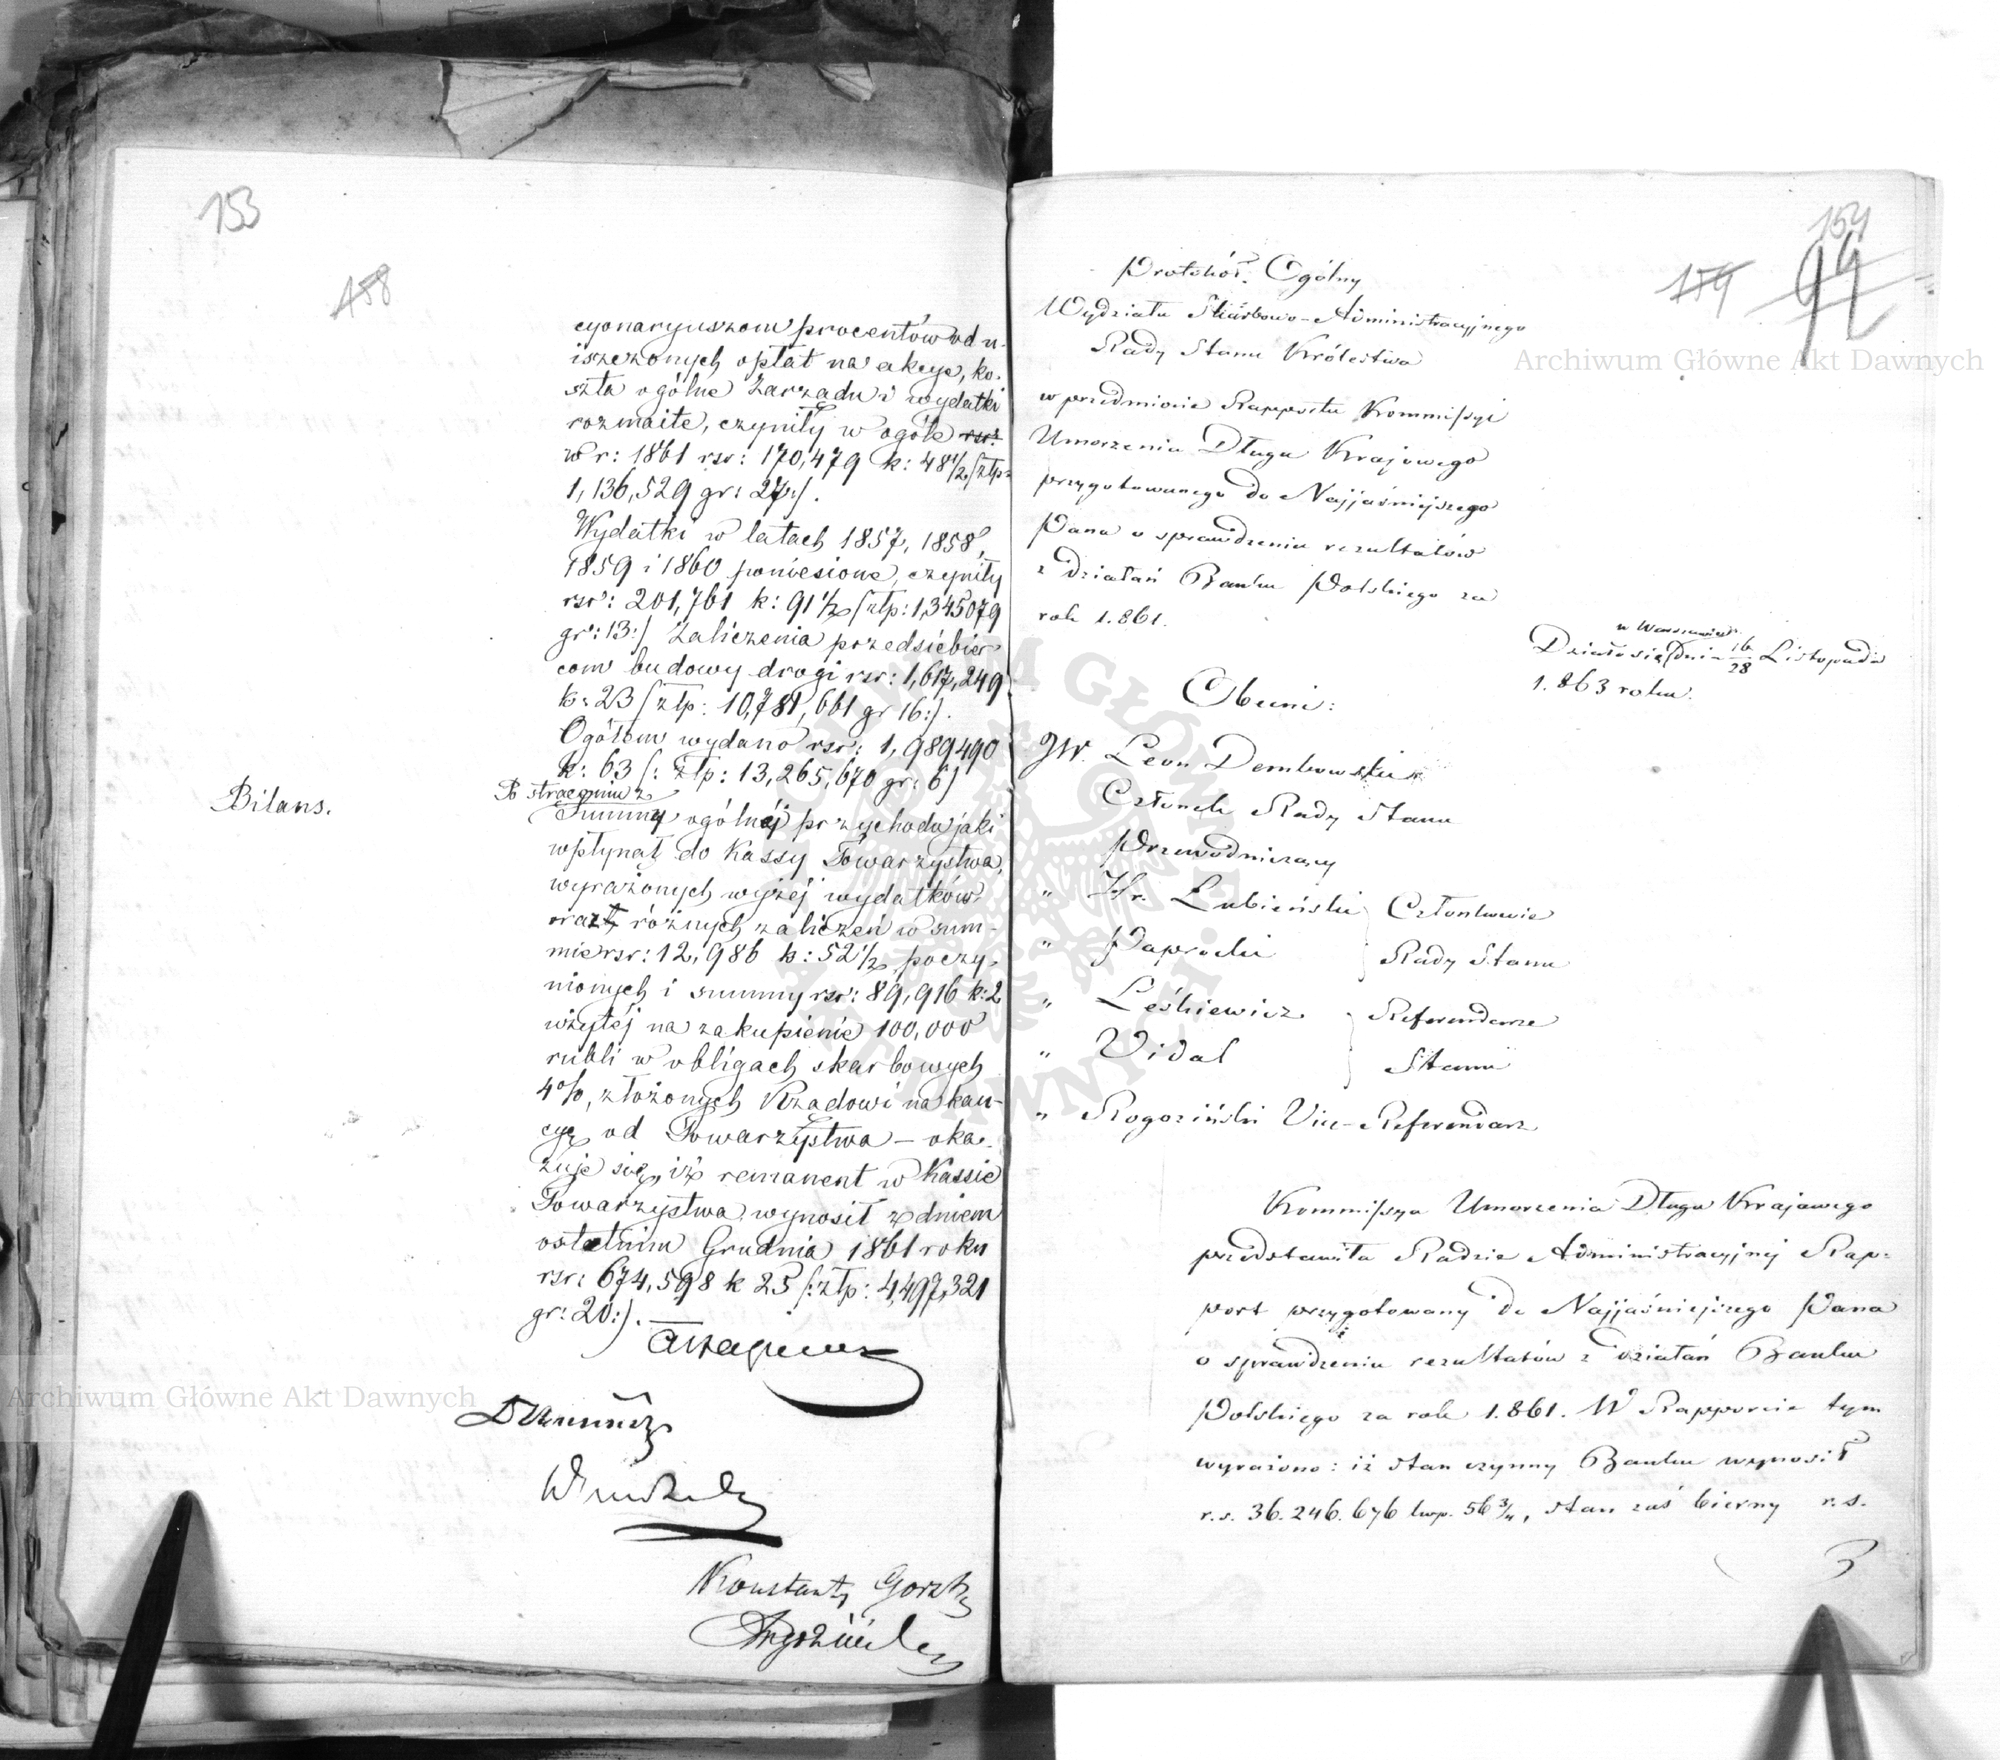 153
158
cyonaryuszom procentów od u-
iszczonych opłat na akcye, ko-
szta ogólne Zarządu i wydatki
rozmaite, czyniły w ogóle rsr:
w r: 1861 rsr: 170,479 k: 48 1/2 (złp:
1,136,529 gr: 27:).
Wydatki w latach 1857, 1858,
1859 i 1860 poniesione, czyniły
rsr: 201,761 k: 91 1/2 (złp: 1,345079
gr: 13:) Zaliczenia przedsiębier-
com budowy drogi rsr: 1,617,249
k: 23 (złp: 10,781,661 gr 16:).
Ogółem wydano rsr: 1,989490
k: 63 (: złp: 13,265,670 gr: 6)
Bilans.
Po strąceniu z
Summy ogólnej przychodu jaki
wpłynął do Kassy Towarzystwa,
wyrażonych wyżej wydatków
oraz różnych zaliczeń w sum-
mie rsr: 12,986 k: 52 1/2 poczy-
nionych i summy rsr: 89,916 k: 2
użytéj na zakupienie 100,000
rubli w obligach skarbowych
4%, złożonych Rządowi na kau-
cyę od Towarzystwa – oka-
zuje się, iż remanent w Kassie
Towarzystwa wynosił z dniem
ostatnim Grudnia 1861 roku
rsr: 674,598 k 25 (: złp: 4,497,321
gr: 20:).
Konstanty Gorski
154
159
99
Protokół Ogólny
Wydziału Skarbowo-Administracyjnego
Rady Stanu Królestwa
w przedmiocie Rapportu Kommissyi
Umorzenia Długu Krajowego
przygotowanego do Najjaśniejszego
Pana o sprawdzeniu rezultatów
z działań Banku Polskiego za
rok 1.861.
w Warszawie
Działo się dnia 16/28 Listopada
1.863 roku.
Obecni:
JW. Leon Dembowski
Członek Rady Stanu
Przewodniczący
" Hr. Łubieński Członkowie
" Paprocki Rady Stanu
" Leśkiewicz Referendarze
" Vidal Stanu
" Rogoziński Vice-Referendarz
Kommissya Umorzenia Długu Krajowego
przedstawiła Radzie Administracyjnej Rap-
port przygotowany do Najjaśniejszego Pana
o sprawdzeniu rezultatów z działań Banku
Polskiego za rok 1.861. W Rapporcie tym
wyrażono: iż stan czynny Banku wynosił
r.s. 36.246.676 kop. 56 3/4, stan zaś bierny r.s.
3
Archiwum Główne Akt Dawnych
Archiwum Główne Akt Dawnych